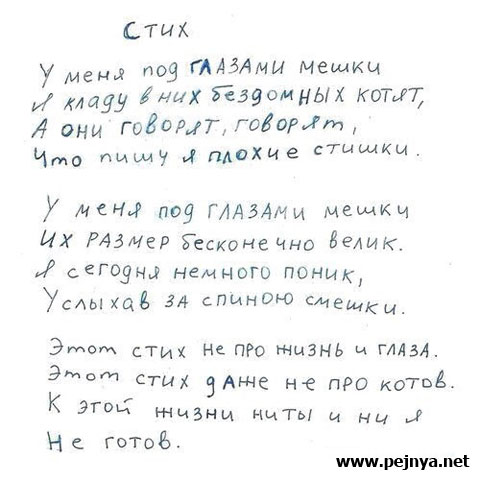 Стих
У меня под ГЛАЗАМИ мешки
Я кладу в них бездомных котят,
А они говорят, говорят,
Что пишу я плохие стишки.
У меня под ГЛАЗАМИ мешки
Их РАЗМЕР бесконечно велик.
Я сегодня немного поник,
Услыхав за спиною смешки.
Этот стих не про жизнь и глаза.
Этот стих даже не про котов.
К этой жизни ниты и ни я
Не готов.
www.pejnya.net